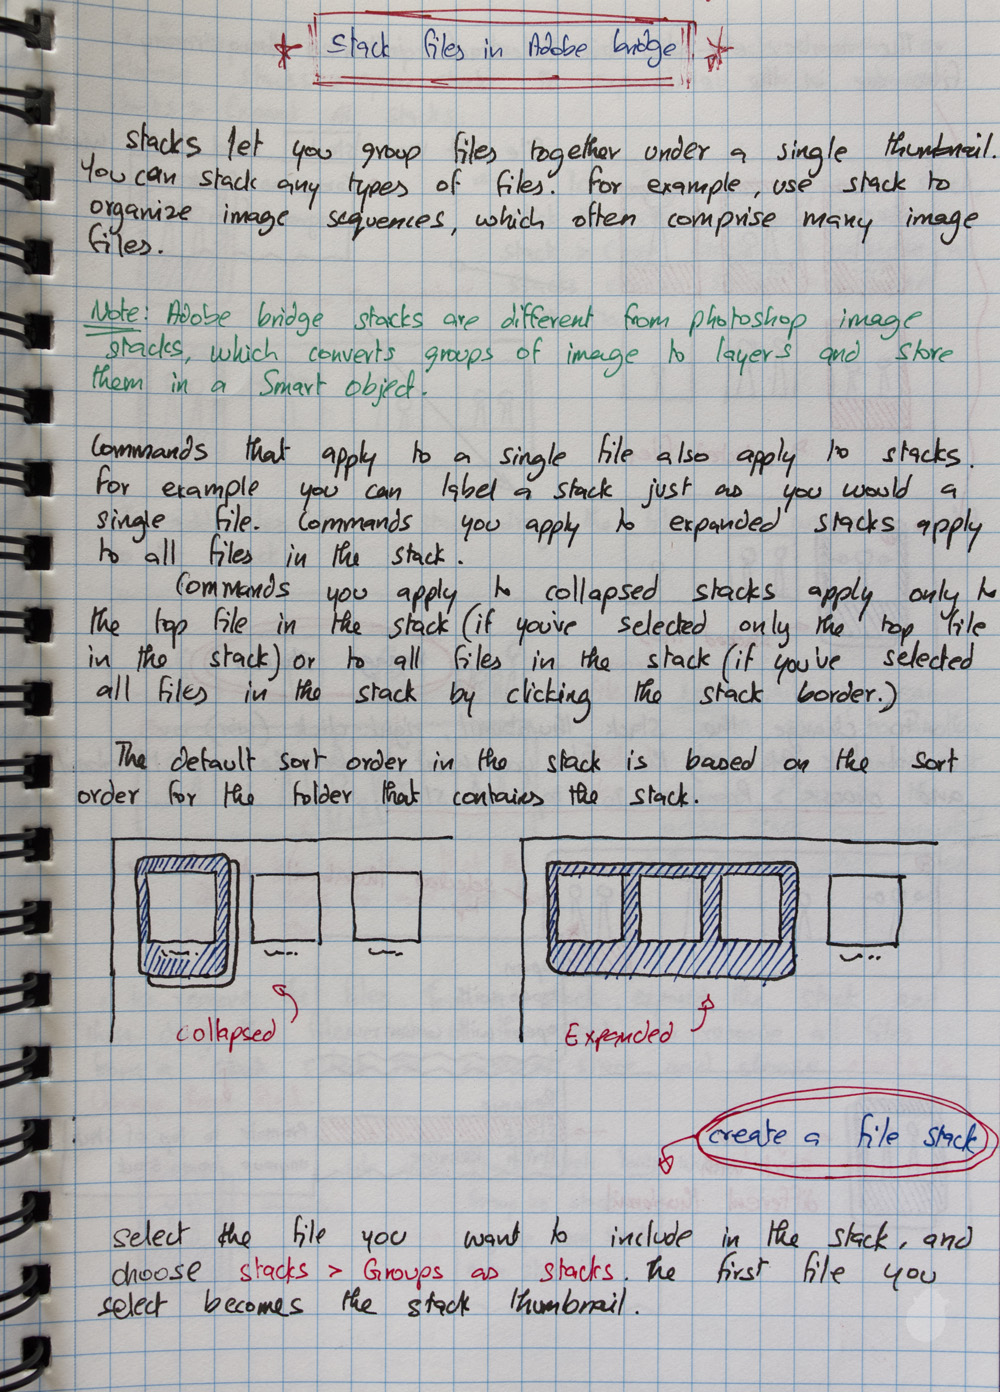 Stack files in Adobe bridge
stacks let you group files together under a single thumbnail.
You can stack any types of files. For example, use stack to
organize image sequences, which often comprise many image
files.
Note: Adobe bridge stacks are different from photoshop image
stacks, which converts groups of image to layers and store
them in a Smart object.
Commands that apply to a single file also apply to stacks.
For example you can label a stack just as you would a
single file. Commands you apply to expanded stacks apply
to all files in the stack.
Commands you apply to collapsed stacks apply only to
the top file in the stack (if you've selected only the top file
in the stack) or to all files in the stack (if you've selected
all files in the stack by clicking the stack border.)
The default sort order in the stack is based on the sort
order for the folder that contains the stack.
Collapsed
Expanded
create a file stack
select the file you want to include in the stack, and
choose stacks > Groups as stacks. The first file you
select becomes the stack thumbnail.